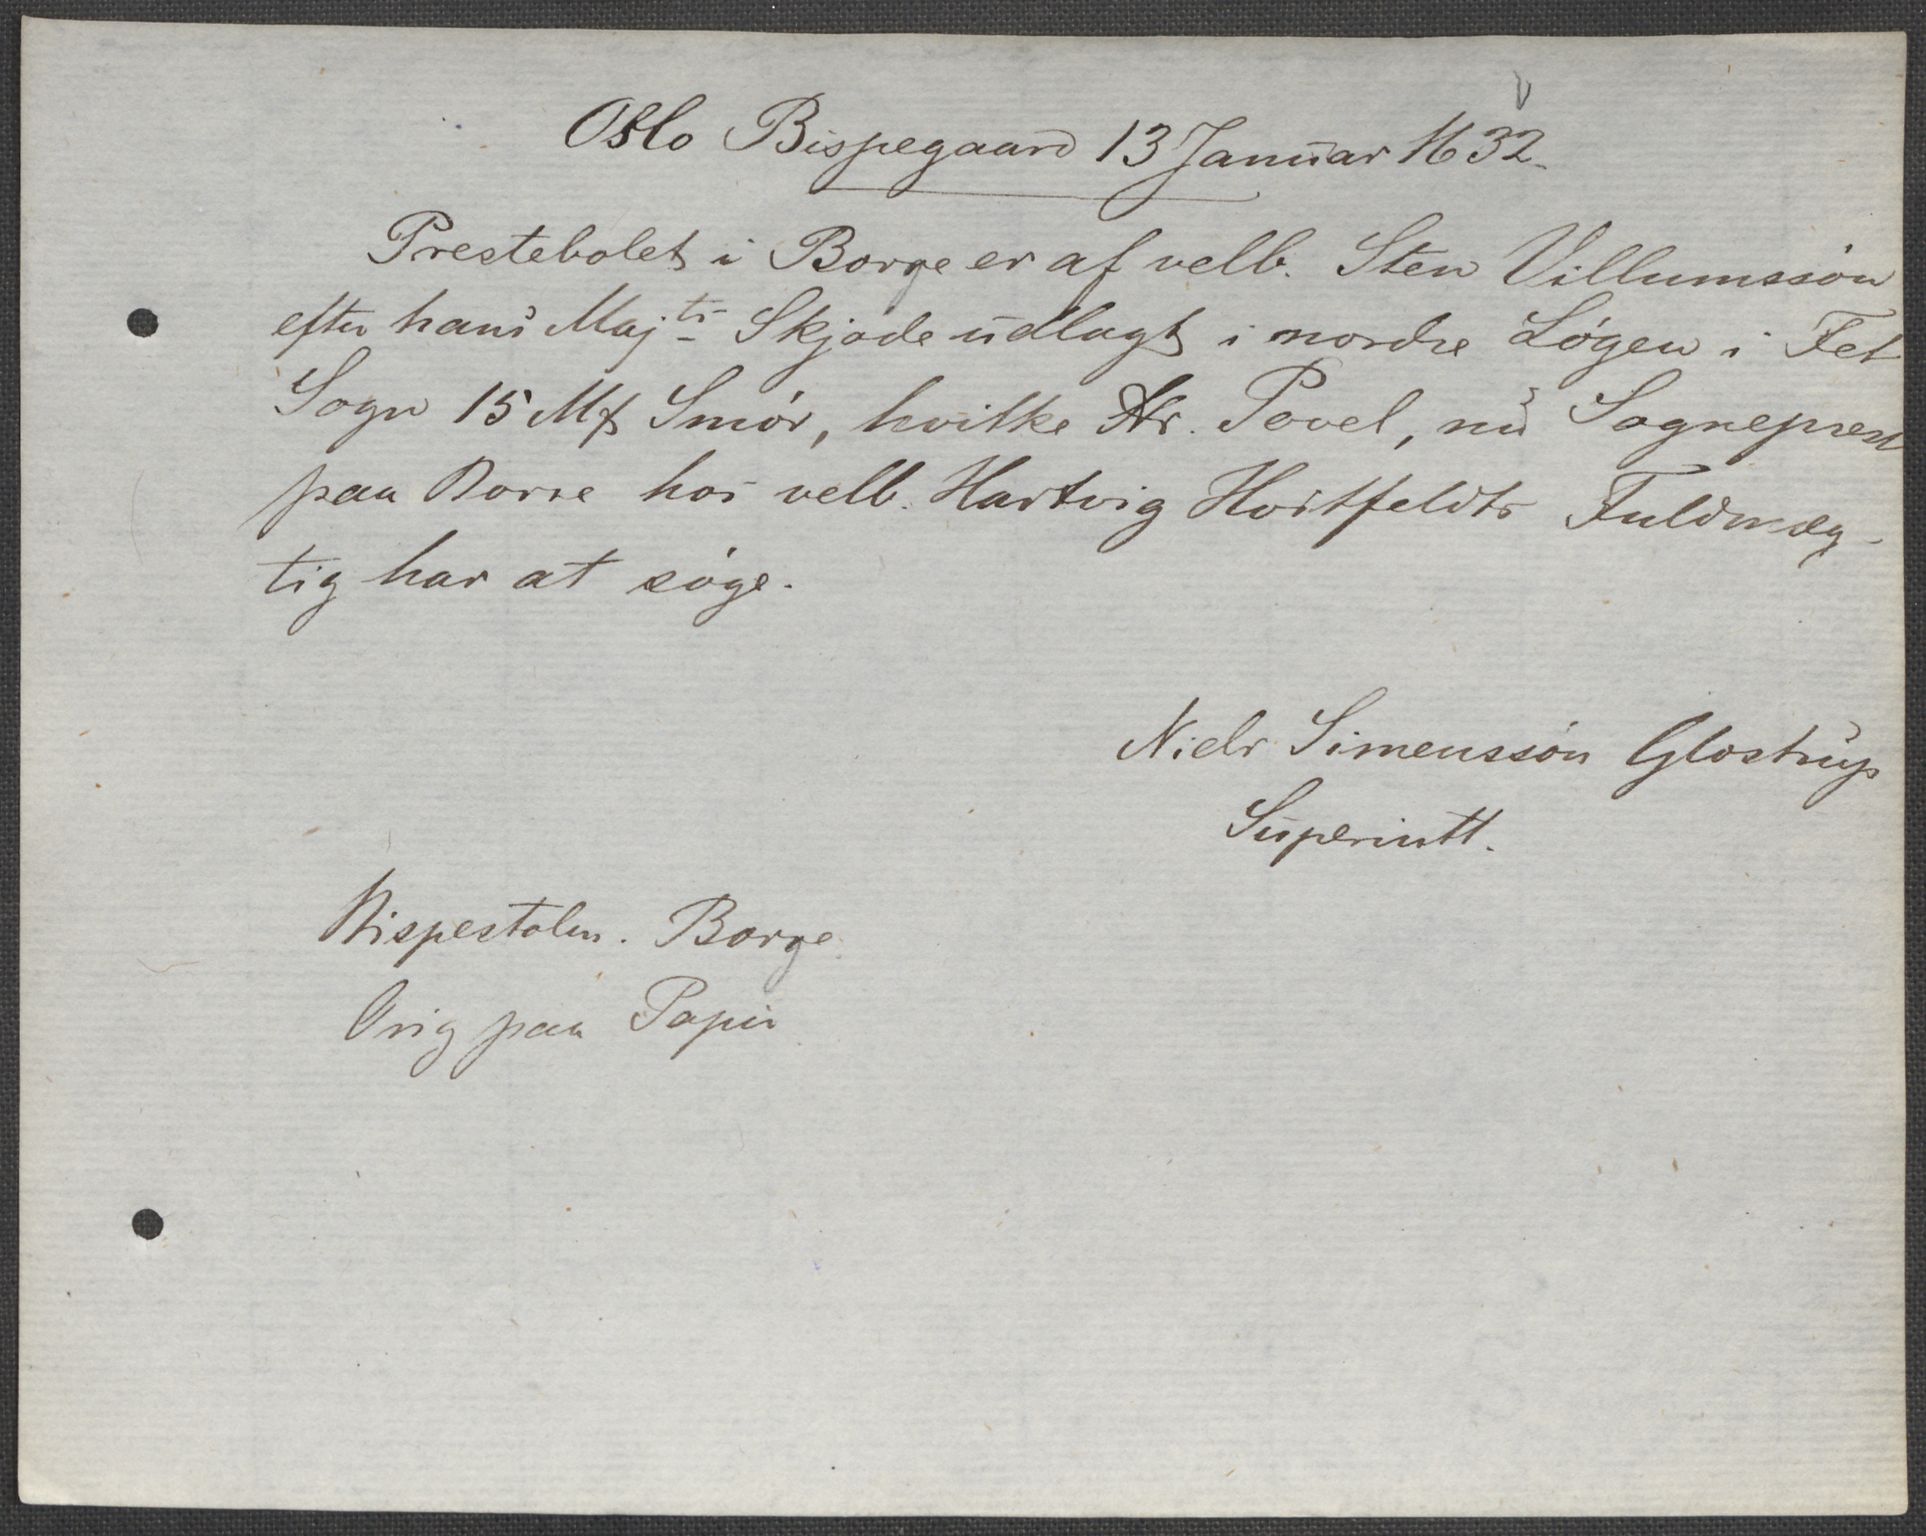 Oslo Bispegaard 13 Januar 1632.
Prestebolet i Borge er af velb. Sten Villumssön
efter hans Maj ts Skjøde udlagt i nordre Løgen i Fet
Sogn 15 Mk Smör, hvilke Hr. Povel, nu Sogneprest
paa Borre hos velb. Hartvig Hvitfeldts Fuldmæg-
tig har at søge.
Niels Simenssön Glostrup
Superintt.
Bispestolen. Borge.
Orig paa Papir